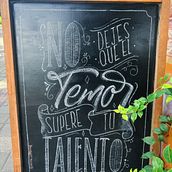 NO DEJES
QUE EL
Temor
SUPERE TU
TALENTO